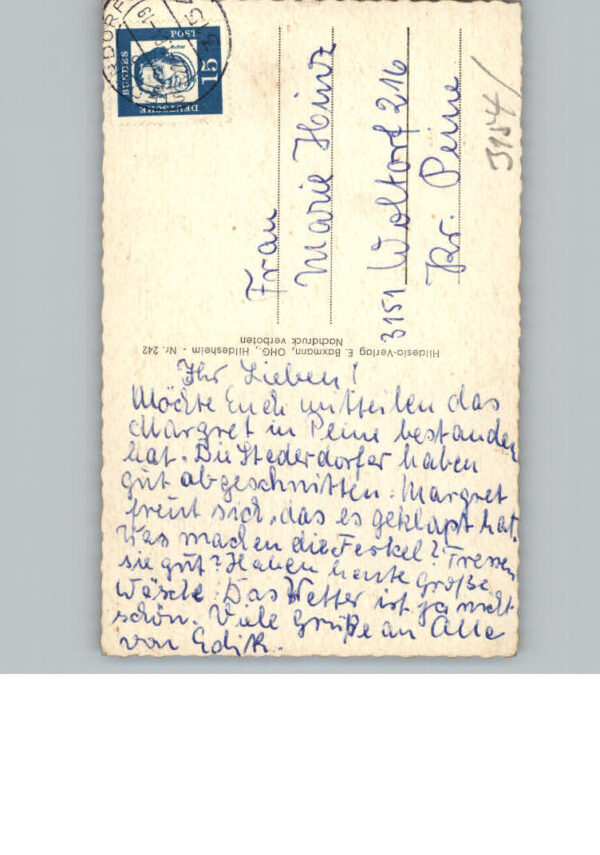 Ihr Lieben!
Möchte Euch mitteilen das
Margret in Peine bestanden
hat. Die Stederdorfer haben
gut abgeschnitten. Margret
freut sich, das es geklapt hat.
Was machen die Ferkel? Fressen
sie gut? Haben heute große
Wäsche. Das Wetter ist ja nicht
schön. Viele Grüße an Alle
von Edith.
Frau
Marie Hinz
3151 Woltorf 216
Kr. Peine
3154/
Hildesia-Verlag E. Baxmann, OHG., Hildesheim - Nr. 242
Nachdruck verboten
DEUTSCHE
BUNDES
POST
15